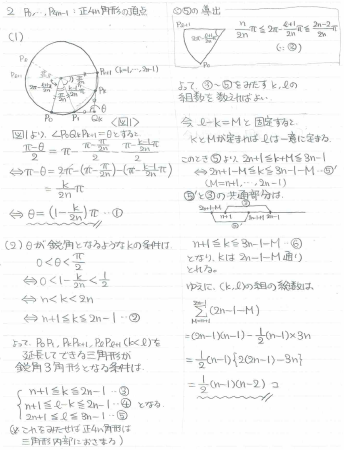 2 P₀, …, P₄ₙ₋₁ : 正4n角形の頂点
(1)
P₀ P₁ Qₖ
Pₖ
Pₖ₊₁ (k=1, …, 2n-1)
<図1>
図1より、∠P₀QₖPₖ₊₁=θとすると
(π-θ)/2 = π - (π-π/2n)/2 - (π-(k-1)/2n π)/2
⇔ π-θ = 2π-(π-π/2n)-(π-(k-1)/2n π)
= k/2n π
⇔ θ = (1-k/2n)π …①
(2) θが鋭角となるようなkの条件は
0<θ<π/2
⇔ 0<1-k/2n<1/2
⇔ n<k<2n
⇔ n+1≦k≦2n-1 …②
よって、P₀P₁, PₖPₖ₊₁, PℓPℓ₊₁(k<ℓ)を
延長してできる三角形が
鋭角3角形となる条件は、
n+1≦k≦2n-1 …③
n+1≦ℓ-k≦2n-1 …④ となる.
2n+1≦ℓ≦3n-1 …⑤
(※これをみたせば正4n角形は
三角形内部におさまる)
◎⑤の導出
Pℓ₊₁
Pℓ
P₀
(∵②)
よって、③~⑤をみたすk,ℓの
組数を数えればよい.
今 ℓ-k=M と固定すると.
KとMが定まればℓは一意に定まる.
このとき⑤より 2n+1≦k+M≦3n-1
⇔ 2n+1-M≦k≦3n-1-M …⑤'
(M=n+1, …, 2n-1)
⑤'と③の共通部分は.
2n+1-M 3n-1-M
n+1 2n-1
n+1≦k≦3n-1-M …⑥
となり、Kは 2n-1-M 通り
とれる。
ゆえに、(k,ℓ)の組の総数は
Σ[M=n+1→2n-1] (2n-1-M)
=(2n-1)(n-1)-1/2(n-1)×3n
=1/2(n-1){2(2n-1)-3n}
=1/2(n-1)(n-2) コ